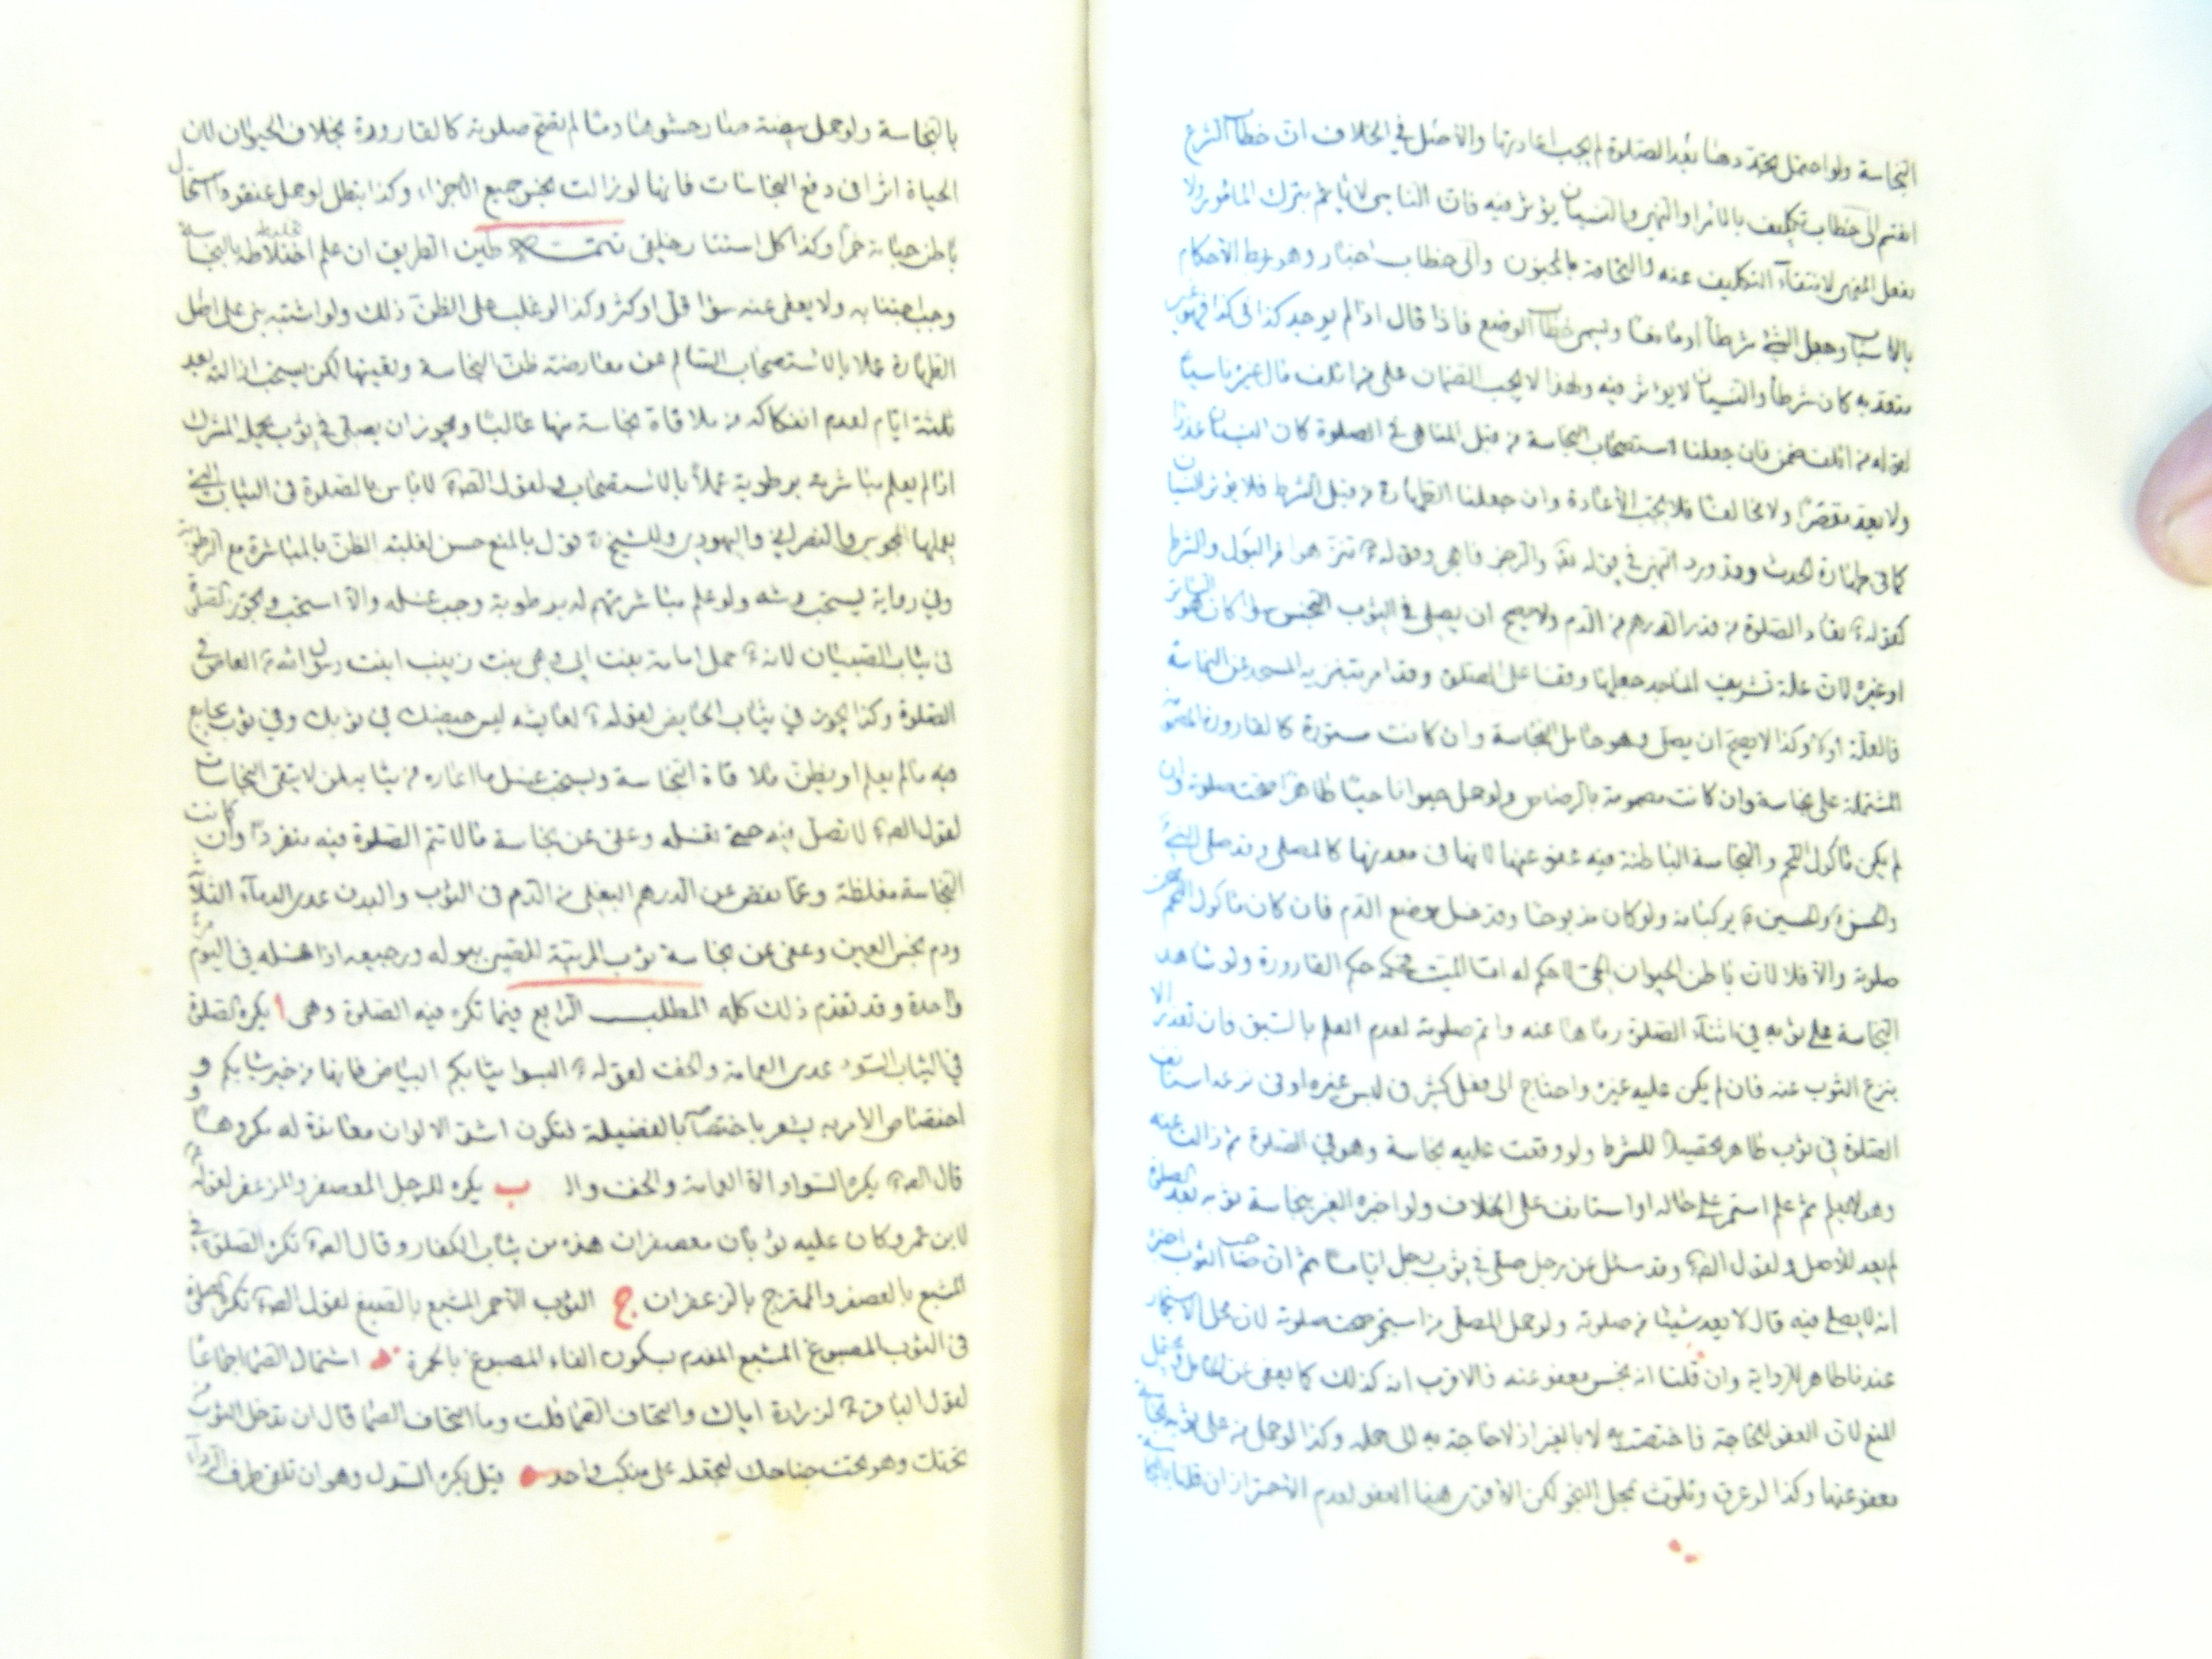 النجاسة ولو احتمل تجددها بعد الصلوة لم يجب اعادتها والاصل في الخلاف ان خطاب الشرع
انقسم الى خطاب تكليف بالامر او النهي والنسيان يؤثر فيه فان الناسي لا يأثم بترك المامور ولا
بفعل المنهي لانتفاء التكليف عنه والنجاسة بالمجنون والى خطاب اخبار وهو ربط الاحكام
بالاسباب وجعل الشئ شرطا او مانعا ويسمى خطاب الوضع فاذا قال اذا لم يوجد كذا في كذا فهو غير
متعد به كان شرطا والنسيان لا يؤثر فيه ولهذا لا يجب الضمان على من اتلف مال غيره ناسيا
لقوله من اتلف ضمن فان جعلنا استصحاب النجاسة من قبل المناهي في الصلوة كان النسيان عذرا
ولا يعد مقصرا ولا مخالفا فلا يجب الاعادة وان جعلنا الطهارة من قبل الشرط فلا يؤثر النسيان
كما في طهارة الحدث وقد ورد النهي في قوله تعالى والرجز فاهجر وقوله تنزهوا من البول والشرط
كقوله تعاد الصلوة من قدر الدرهم من الدم ولا يصح ان يصلي في الثوب النجس سواء كان هو الساتر
او غيره لان علة تشريف المساجد جعلها وقفا على المصلين وقد امر بتنزيه المسجد عن النجاسة
فالعلة اولى وكذا لا يصح ان يصلي وهو حامل النجاسة وان كانت مستورة كالقارورة المضمومة
المشتملة على نجاسة وان كانت مصمومة بالرصاص ولو حمل حيوانا حيا طاهرا صحت صلوته وان
لم يكن ماكول اللحم والنجاسة الباطنة فيه عفو عنها لانها في معدنها كالمصلي وقد صلى النبي
والحسن والحسين يركبانه ولو كان مذبوحا وقد غسل موضع الدم فان كان ماكول اللحم صح
صلوته والا فلا لان باطن الحيوان الحي لا حكم له اما الميت فحكمه حكم القارورة ولو شاهد
النجاسة على ثوبه في اثناء الصلوة رماها عنه واتم صلوته لعدم العلم بالسبق فان تعذر الا
بنزع الثوب عنه فان لم يكن عليه غيره واحتاج الى فعل كثير في لبس غيره او في نزعه استانف
الصلوة في ثوب طاهر تحصيلا للشرط ولو وقعت عليه نجاسة وهو في الصلوة ثم زالت عنه
وهو لا يعلم ثم علم استمر على حاله او استانف على الخلاف ولو اخبره الغير بنجاسة ثوبه بعد الصلوة
لم يعد للاصل ولقول الص وقد سئل عن رجل صلى في ثوب رجل اياما ثم ان صاحب الثوب اخبره
انه لا يصلي فيه قال لا يعد شيئا من صلوته ولو حمل المصلي من استجمر صحت صلوته لان محل الاستجمار
عندنا طاهر للرواية وان قلنا انه نجس معفو عنه فالاقرب انه كذلك كما يعفى عن الحامل ويحتمل
المنع لان العفو للحاجة فاختصت به لا بالغير اذ لا حاجة به الى حمله وكذا لو حمل من على ثوبه نجاسة
معفو عنها وكذا لو عرق وتلوث بمحل النجو لكن الاقوى هنا العفو لعدم الاحتراز ان قلنا بالنجاسة
بالنجاسة ولو حمل بيضة صار حشوها دما لم تصح صلوته كالقارورة بخلاف الحيوان لان
الحياة اثرا في دفع النجاسات فانها لو زالت نجس جميع الاجزاء وكذا يبطل لو حمل عنقودا استحال
باطن حباته خمرا وكذا كل استتار خلقي تتمت طين الطريق ان علم اختلاطه بالنجاسة
وجب اجتنابه ولا يعفى عنه سواء قل او كثر وكذا لو غلب على الظن ذلك ولو اشتبه بنى على اصل
الطهارة عملا بالاستصحاب السالم عن معارضة ظن النجاسة ويقينها لكن يستحب ازالته بعد
ثلثة ايام لعدم انفكاكه من ملاقاة نجاسة منها غالبا ويجوز ان يصلي في ثوب يحمله المشرك
اذا لم يعلم مباشرته برطوبة عملا بالاستصحاب ولقول الص لا باس بالصلوة في الثياب التي
يعملها المجوسي والنصراني واليهودي وللشيخ قول بالمنع حسن لغلبة الظن بالمباشرة مع الرطوبة
وفي رواية يستحب رشه ولو علم مباشرتهم له برطوبة وجب غسله والا استحب ويجوز الصلوة
في ثياب الصبيان لانه حمل امامة بنت ابي وهي بنت زينب ابنت رسول الله العاص في
الصلوة وكذا يجوز في ثياب الحايض لقوله لعايشة ليس حيضك في ثوبك وفي ثوب يجامع
فيه ما لم يعلم او يظن ملاقاة النجاسة ويستحب غسل ما اعاره من ثيابه لمن لا يتقي النجاسات
لقول الص لا تصل فيه حتى تغسله وعفى عن نجاسة ما لا تتم الصلوة فيه منفردا وان كانت
النجاسة مغلظة وعما نقص عن الدرهم البغلي من الدم في الثوب والبدن عدى الدماء الثلاثة
ودم نجس العين وعفى عن نجاسة ثوب المربية للصبي ببوله ورجيعه اذا غسله في اليوم مرة
واحدة وقد تقدم ذلك كله المطلب الرابع فيما تكره فيه الصلوة وهى ا يكره الصلوة
في الثياب السود عدى العمامة والخف لقوله البسوا ثيابكم البياض فانها من خير ثيابكم و
اختصاص الامر به يشعر باختصاصه بالفضيلة فتكون اشق الالوان معاندة له مكروها و
قال الص يكره السواد الا العمامة والخف وال ب يكره للرجل المعصفر والمزعفر لقوله
لابن عمرو كان عليه ثوبان معصفران هذه من ثياب الكفار وقال الص تكره الصلوة في
المشبع بالعصفر والممتزج بالزعفران ج الثوب الاحمر المشبع بالصبغ لقول الص تكره الصلوة
في الثوب المصبوغ المشبع المفدم بسكون الفاء المصبوغ بالحمرة د اشتمال الصماء اجماعا
لقول الباقر لزرارة اياك والتحاف الصماء قلت وما التحاف الصماء قال ان تدخل الثوب من
تحت وهو تحت جناحك لتجعله على منكب واحد ه قيل يكره السدل وهو ان تلقى طرف الرداء